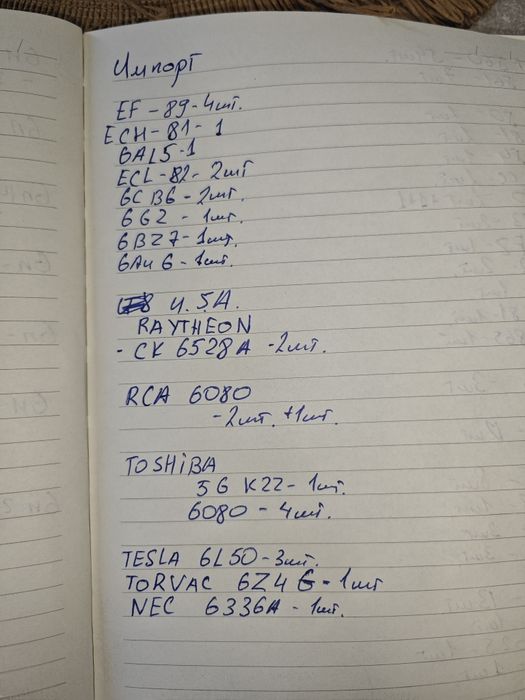 Импорт
EF-89-4шт.
ECH-81-1
6AL5-1
ECL-82-2шт
6CB6-2шт.
6G2-1шт.
6BZ7-1шт.
6AU6-1шт.
U.S.A.
RAYTHEON
- CK 6528A -2шт.
RCA 6080
-2шт. +1шт.
TOSHiBA
5G K22-1шт.
6080-4шт.
TESLA 6L50-3шт.
TORVAC 6Z4 G-1шт
NEC 6336A-1шт.